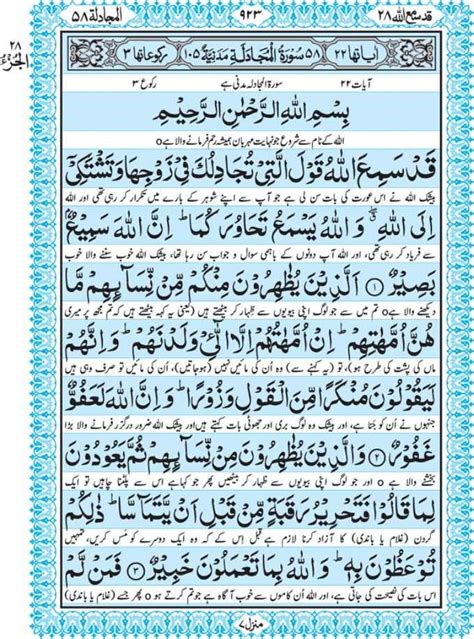 قد سمع اللہ ۲۸
۹۲۳
المجادلة ۵۸
۲۸
الجزء
اٰیاتها ۲۲
۵۸ سُوْرَةُ الْمُجَادَلَةِ مَدَنِیَّةٌ ۱۰۵
رکوعاتها ۳
آیات ۲۲
سورۃ المجادلہ مدنی ہے
رکوع ۳
بِسْمِ اللهِ الرَّحْمٰنِ الرَّحِیْمِ
اللہ کے نام سے شروع جو نہایت مہربان ہمیشہ رحم فرمانے والا ہے o
قَدْ سَمِعَ اللهُ قَوْلَ الَّتِیْ تُجَادِلُكَ فِیْ زَوْجِهَا وَ تَشْتَكِیْۤ
بیشک اللہ نے اس عورت کی بات سن لی ہے جو آپ سے اپنے شوہر کے بارے میں تکرار کر رہی تھی اور اللہ
اِلَى اللهِ ۖۗ وَ اللهُ یَسْمَعُ تَحَاوُرَكُمَا ؕ اِنَّ اللهَ سَمِیْعٌۢ
سے فریاد کر رہی تھی، اور اللہ آپ دونوں کے باہمی سوال و جواب سن رہا تھا، بیشک اللہ خوب سننے والا خوب
بَصِیْرٌ ۝۱ اَلَّذِیْنَ یُظٰهِرُوْنَ مِنْكُمْ مِّنْ نِّسَآىِٕهِمْ مَّا
دیکھنے والا ہے o تم میں سے جو لوگ اپنی بیویوں سے ظہار کر بیٹھتے ہیں (یعنی یہ کہہ بیٹھتے ہیں کہ تم مجھ پر میری
هُنَّ اُمَّهٰتِهِمْ ؕ اِنْ اُمَّهٰتُهُمْ اِلَّا الّٰٓـِٔیْ وَلَدْنَهُمْ ؕ وَ اِنَّهُمْ
ماں کی پشت کی طرح ہو)، تو (یہ کہنے سے) وہ اُن کی مائیں نہیں (ہوجاتیں)، اُن کی مائیں تو صرف وہی ہیں
لَیَقُوْلُوْنَ مُنْكَرًا مِّنَ الْقَوْلِ وَ زُوْرًا ؕ وَ اِنَّ اللهَ لَعَفُوٌّ
جنہوں نے اُن کو جنا ہے، اور بیشک وہ لوگ بری اور جھوٹی بات کہتے ہیں، اور بیشک اللہ ضرور درگزر فرمانے والا بڑا
غَفُوْرٌ ۝۲ وَ الَّذِیْنَ یُظٰهِرُوْنَ مِنْ نِّسَآىِٕهِمْ ثُمَّ یَعُوْدُوْنَ
بخشنے والا ہے o اور جو لوگ اپنی بیویوں سے ظہار کر بیٹھیں پھر جو کہا ہے اس سے پلٹنا چاہیں تو ایک
لِمَا قَالُوْا فَتَحْرِیْرُ رَقَبَةٍ مِّنْ قَبْلِ اَنْ یَّتَمَآسَّا ؕ ذٰلِكُمْ
گردن (غلام یا باندی) کا آزاد کرنا لازم ہے قبل اس کے کہ وہ ایک دوسرے کو مَس کریں، تمہیں
تُوْعَظُوْنَ بِهٖ ؕ وَ اللهُ بِمَا تَعْمَلُوْنَ خَبِیْرٌ ۝۳ فَمَنْ لَّمْ
اس بات کی نصیحت کی جاتی ہے، اور اللہ اُن کاموں سے خوب آگاہ ہے جو تم کرتے ہو o پھر جسے (غلام یا باندی)
منزل ۷